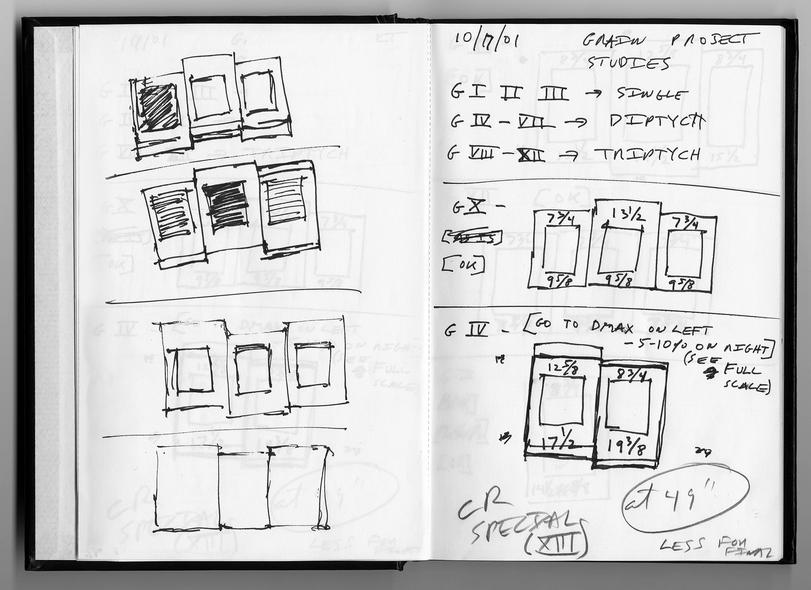 10/17/01 GRADW PROJECT
STUDIES
G I II III → SINGLE
G IV - VII → DIPTYCH
G VIII - XII → TRIPTYCH
G X -
[OK]
7 3/4 13 1/2 7 3/4
9 5/8 9 5/8 9 5/8
G IV - [GO TO DMAX ON LEFT
- 5-10% ON RIGHT]
(SEE
FULL
SCALE)
12 5/8 8 3/4
17 1/2 19 3/8
CR
SPECIAL
(XIII)
at 49"
LESS FOR
FINAL